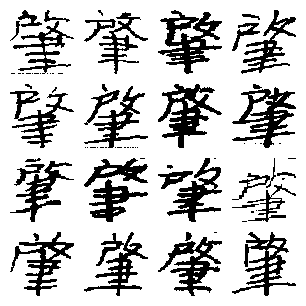 肇肇肇肇
肇肇肇肇
肇肇肇肇
肇肇肇肇